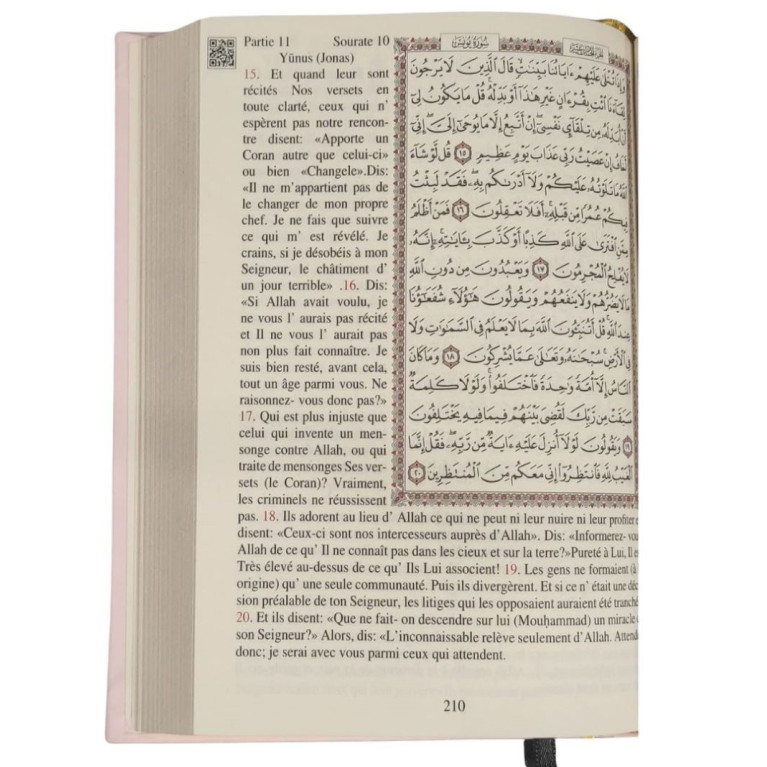 Partie 11 Sourate 10
Yūnus (Jonas)
15. Et quand leur sont
récités Nos versets en
toute clarté, ceux qui n’
espèrent pas notre rencon-
tre disent: «Apporte un
Coran autre que celui-ci»
ou bien «Changele».Dis:
«Il ne m’appartient pas de
le changer de mon propre
chef. Je ne fais que suivre
ce qui m’ est révélé. Je
crains, si je désobéis à mon
Seigneur, le châtiment d’
un jour terrible» .16. Dis:
«Si Allah avait voulu, je
ne vous l’ aurais pas récité
et Il ne vous l’ aurait pas
non plus fait connaître. Je
suis bien resté, avant cela,
tout un âge parmi vous. Ne
raisonnez- vous donc pas?»
17. Qui est plus injuste que
celui qui invente un men-
songe contre Allah, ou qui
traite de mensonges Ses ver-
sets (le Coran)? Vraiment,
les criminels ne réussissent
pas. 18. Ils adorent au lieu d’ Allah ce qui ne peut ni leur nuire ni leur profiter e
disent: «Ceux-ci sont nos intercesseurs auprès d’Allah». Dis: «Informerez- vou
Allah de ce qu’ Il ne connaît pas dans les cieux et sur la terre?»Pureté à Lui, Il e
Très élevé au-dessus de ce qu’ Ils Lui associent! 19. Les gens ne formaient (à
origine) qu’ une seule communauté. Puis ils divergèrent. Et si ce n’ était une déc
sion préalable de ton Seigneur, les litiges qui les opposaient auraient été tranché
20. Et ils disent: «Que ne fait- on descendre sur lui (Mouḥammad) un miracle d
son Seigneur?» Alors, dis: «L’inconnaissable relève seulement d’Allah. Attend
donc; je serai avec vous parmi ceux qui attendent.
سُورَةُ يُونُسَ
وَإِذَا تُتْلَىٰ عَلَيْهِمْ ءَايَاتُنَا بَيِّنَٰتٍ قَالَ ٱلَّذِينَ لَا يَرْجُونَ
لِقَآءَنَا ٱئْتِ بِقُرْءَانٍ غَيْرِ هَٰذَآ أَوْ بَدِّلْهُ قُلْ مَا يَكُونُ لِىٓ
أَنْ أُبَدِّلَهُۥ مِن تِلْقَآئِ نَفْسِىٓ إِنْ أَتَّبِعُ إِلَّا مَا يُوحَىٰٓ إِلَىَّ إِنِّىٓ
أَخَافُ إِنْ عَصَيْتُ رَبِّى عَذَابَ يَوْمٍ عَظِيمٍ ١٥ قُل لَّوْ شَآءَ
ٱللَّهُ مَا تَلَوْتُهُۥ عَلَيْكُمْ وَلَآ أَدْرَىٰكُم بِهِۦ فَقَدْ لَبِثْتُ
فِيكُمْ عُمُرًا مِّن قَبْلِهِۦٓ أَفَلَا تَعْقِلُونَ ١٦ فَمَنْ أَظْلَمُ
مِمَّنِ ٱفْتَرَىٰ عَلَى ٱللَّهِ كَذِبًا أَوْ كَذَّبَ بِـَٔايَٰتِهِۦٓ إِنَّهُۥ
لَا يُفْلِحُ ٱلْمُجْرِمُونَ ١٧ وَيَعْبُدُونَ مِن دُونِ ٱللَّهِ
مَا لَا يَضُرُّهُمْ وَلَا يَنفَعُهُمْ وَيَقُولُونَ هَٰٓؤُلَآءِ شُفَعَٰٓؤُنَا
عِندَ ٱللَّهِ قُلْ أَتُنَبِّـُٔونَ ٱللَّهَ بِمَا لَا يَعْلَمُ فِى ٱلسَّمَٰوَٰتِ وَلَا
فِى ٱلْأَرْضِ سُبْحَٰنَهُۥ وَتَعَٰلَىٰ عَمَّا يُشْرِكُونَ ١٨ وَمَا كَانَ
ٱلنَّاسُ إِلَّآ أُمَّةً وَٰحِدَةً فَٱخْتَلَفُوا۟ وَلَوْلَا كَلِمَةٌ
سَبَقَتْ مِن رَّبِّكَ لَقُضِىَ بَيْنَهُمْ فِيمَا فِيهِ يَخْتَلِفُونَ
١٩ وَيَقُولُونَ لَوْلَآ أُنزِلَ عَلَيْهِ ءَايَةٌ مِّن رَّبِّهِۦ فَقُلْ إِنَّمَا
ٱلْغَيْبُ لِلَّهِ فَٱنتَظِرُوٓا۟ إِنِّى مَعَكُم مِّنَ ٱلْمُنتَظِرِينَ ٢٠
210